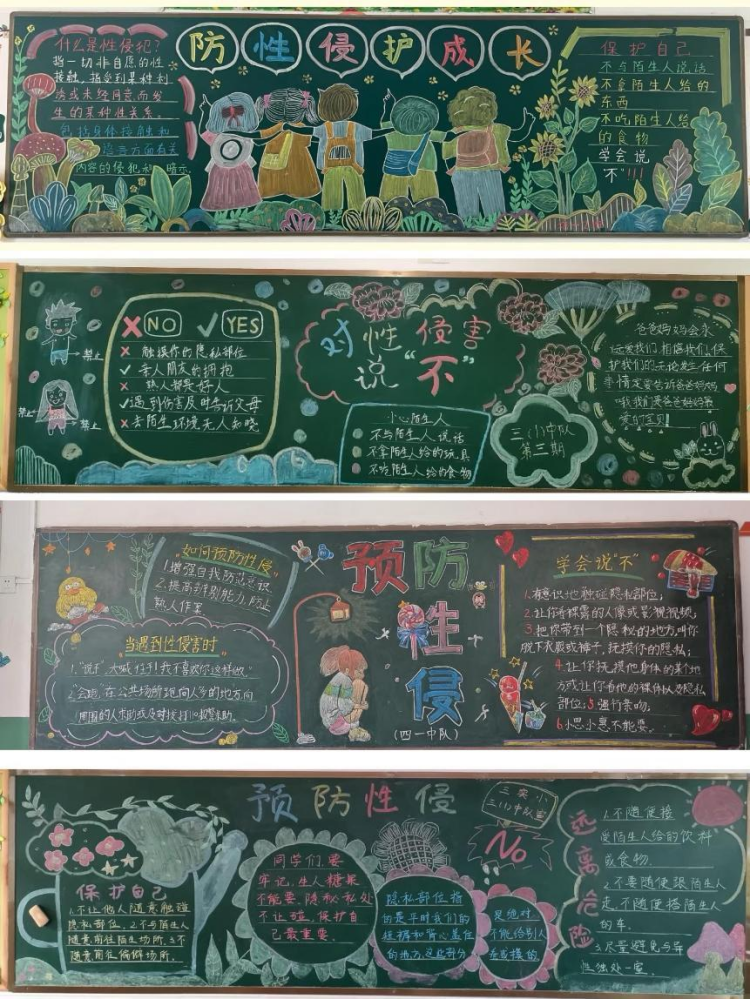 防性侵护成长
什么是性侵犯?
指一切非自愿的性
接触,指受到某种利
诱或未经同意而发
生的某种性关系。
包括身体接触和
内容的侵犯和暗示
保护自己
不与陌生人说话
不拿陌生人给的
东西
不吃陌生人给
的食物
学会说
不"!!!
NO YES
触摸你的隐私部位
亲人朋友的拥抱
熟人都是好人
遇到伤害及时告诉父母
去陌生环境无人知晓
禁止
禁止
禁止
对性侵害
说"不"
小心陌生人
不与陌生人说话
不拿陌生人给的玩具
不吃陌生人给的食物
三(1)中队
第三期
爸爸妈妈会永
远爱我们相信我们保
护我们无论发生任何
事情定要告诉爸爸妈妈
哦我们是爸爸妈妈最
爱的宝贝!
预防
性
侵
(四一中队)
如何预防性侵
1.增强自我防范意识.
2.提高识别能力,防止
熟人作案
当遇到性侵害时
1."说不"大喊 行了!我不喜欢你这样做"
学会说"不"
1.有意识地触碰隐私部位;
2.让你看裸露的人像或影视视频
3.把你带到一个隐秘的地方叫你
脱下衣裳或裤子,抚摸你的隐私;
4.让你抚摸他身体的某个地
方或让你看他的裸体以及隐私
部位;5.强行亲吻.
6.小恩小惠不能要.
预防性侵
三实小
三(1)中队宣
No
保护自己
1.不让他人随意触碰
隐私部位。2.不与陌生人
随意前往陌生场所。3.不
随意前往偏僻场所。
同学们,要
牢记,生人糖果
不能要,隐私私处
不让碰,保护自
己最重要。
隐私部位指
的是平时我们的
短裤和背心盖住
的地方,这些部分
是绝对
不能给别人
看或摸的
远离危险
1.不随便接
受陌生人给的饮料
或食物.
2.不要随便跟陌生人
走,不随便搭陌生人
的车.
3.尽量避免与异
性独处一室.